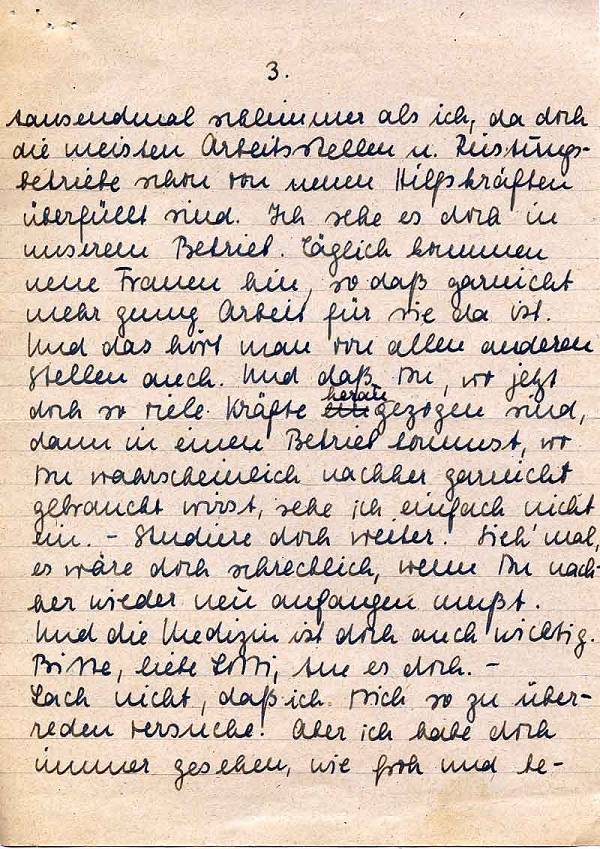 3.
tausendmal schlimmer als ich, da doch
die meisten Arbeitsstellen u. Rüstungs-
betriebe schon von neuen Hilfskräften
überfüllt sind. Ich sehe es doch in
unserem Betrieb. Täglich kommen
neue Frauen hin, so daß garnicht
mehr genug Arbeit für sie da ist.
Und das hört man von allen anderen
Stellen auch. Und daß Du, wo jetzt
doch so viele Kräfte herangezogen sind,
dann in einen Betrieb kommst, wo
Du wahrscheinlich nachher garnicht
gebraucht wirst, sehe ich einfach nicht
ein. - Studiere doch weiter! Sieh' mal,
es wäre doch schrecklich, wenn Du nach-
her wieder neu anfangen mußt.
Und die Medizin ist doch auch wichtig.
Bitte, liebe Lotti, tue es doch. -
Lach nicht, daß ich Dich so zu über-
reden versuche! Aber ich habe doch
immer gesehen, wie froh und be-